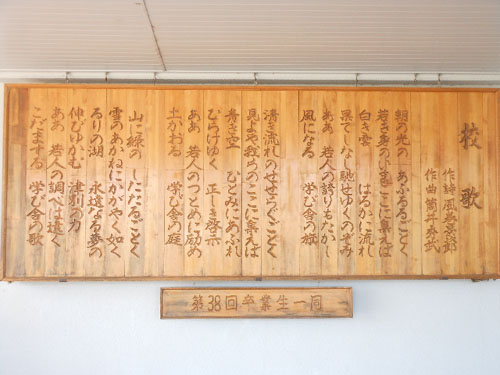 校歌
作詩 風巻景次郎
作曲 筒井秀武
朝の光の あふるるごとく
若き身のいま ここに集えば
白き雲 はるかに流れ
果てしなし 馳せゆくのぞみ
ああ 若人の誇りもたかし
風になる 学び舎の旗
清き流れの せせらぐごとく
見よや我らの ここに集えば
青き空 ひとみにあふれ
ひらけゆく 正しき啓示
ああ 若人のつとめに励め
土かおる 学び舎の庭
山に緑の したたるごとく
雪のあかねに かがやく如く
るりの湖 永遠なる夢の
伸びゆかむ 津別の力
ああ 若人の調べは遠く
こだまする 学び舎の歌
第38回卒業生一同